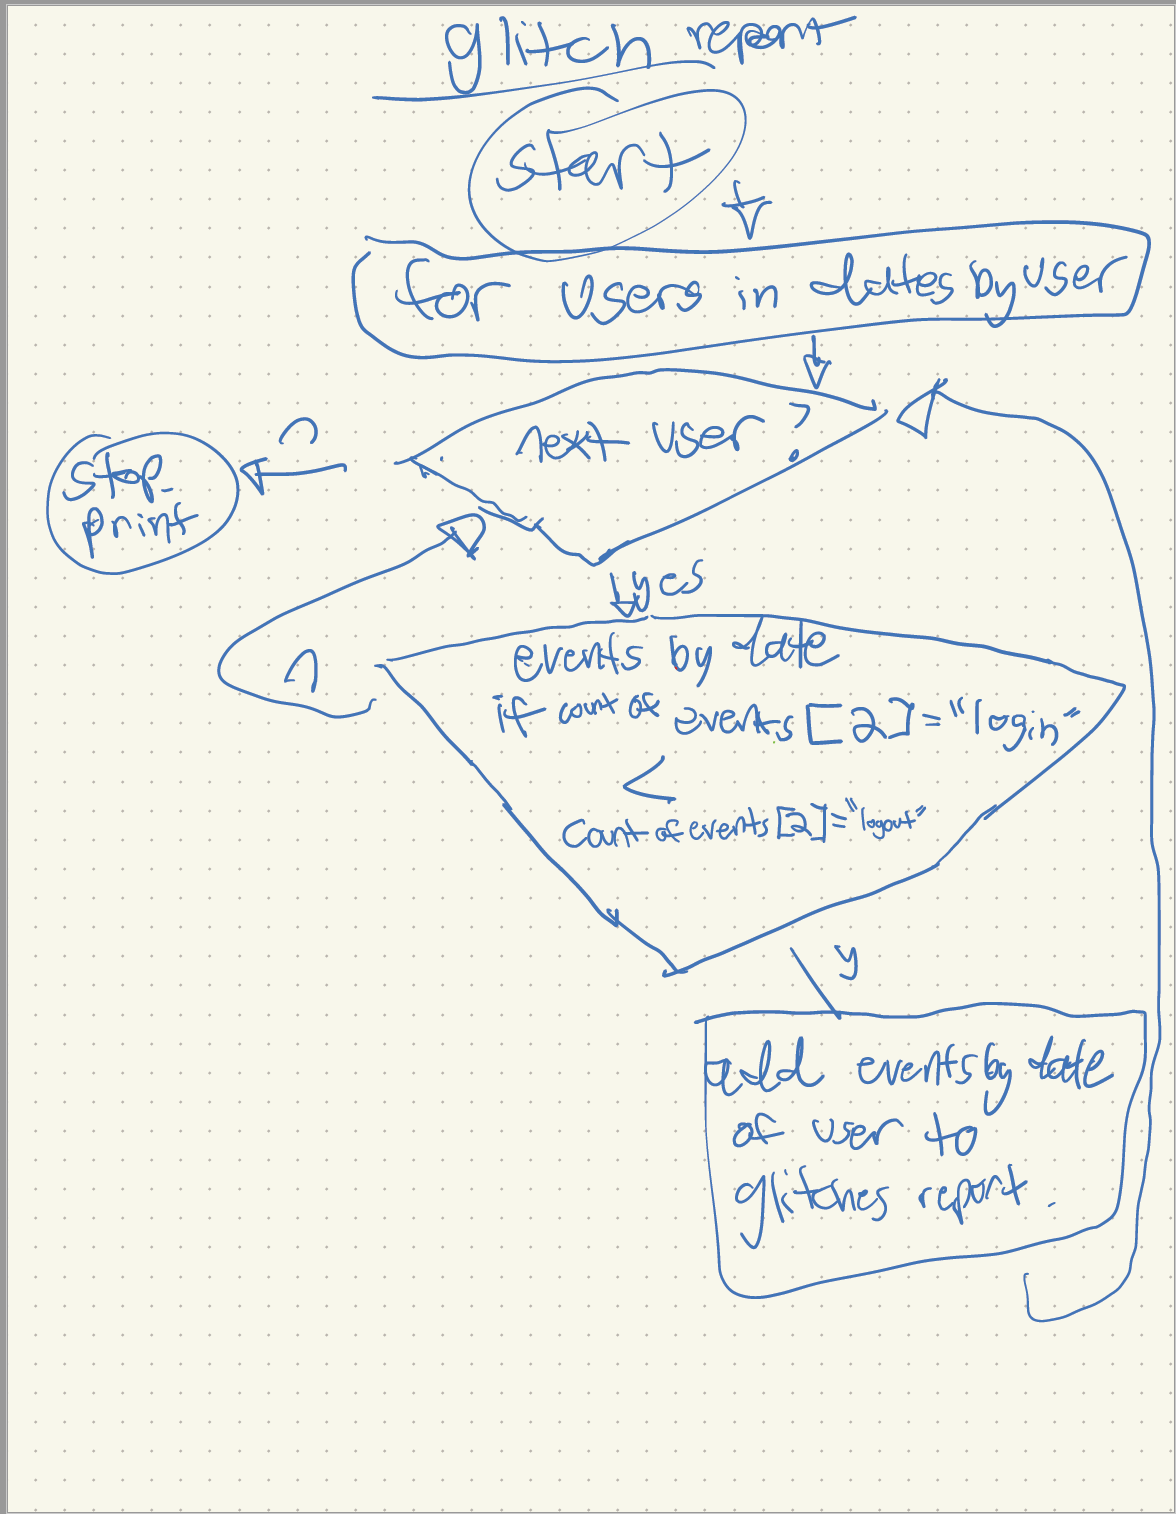 glitch report
start
for users in dates by user
next user ?
n
stop
print
yes
events by date
if count of events [2] = "login"
<
n
count of events [2] = "logout"
y
add events by date
of user to
glitches report.